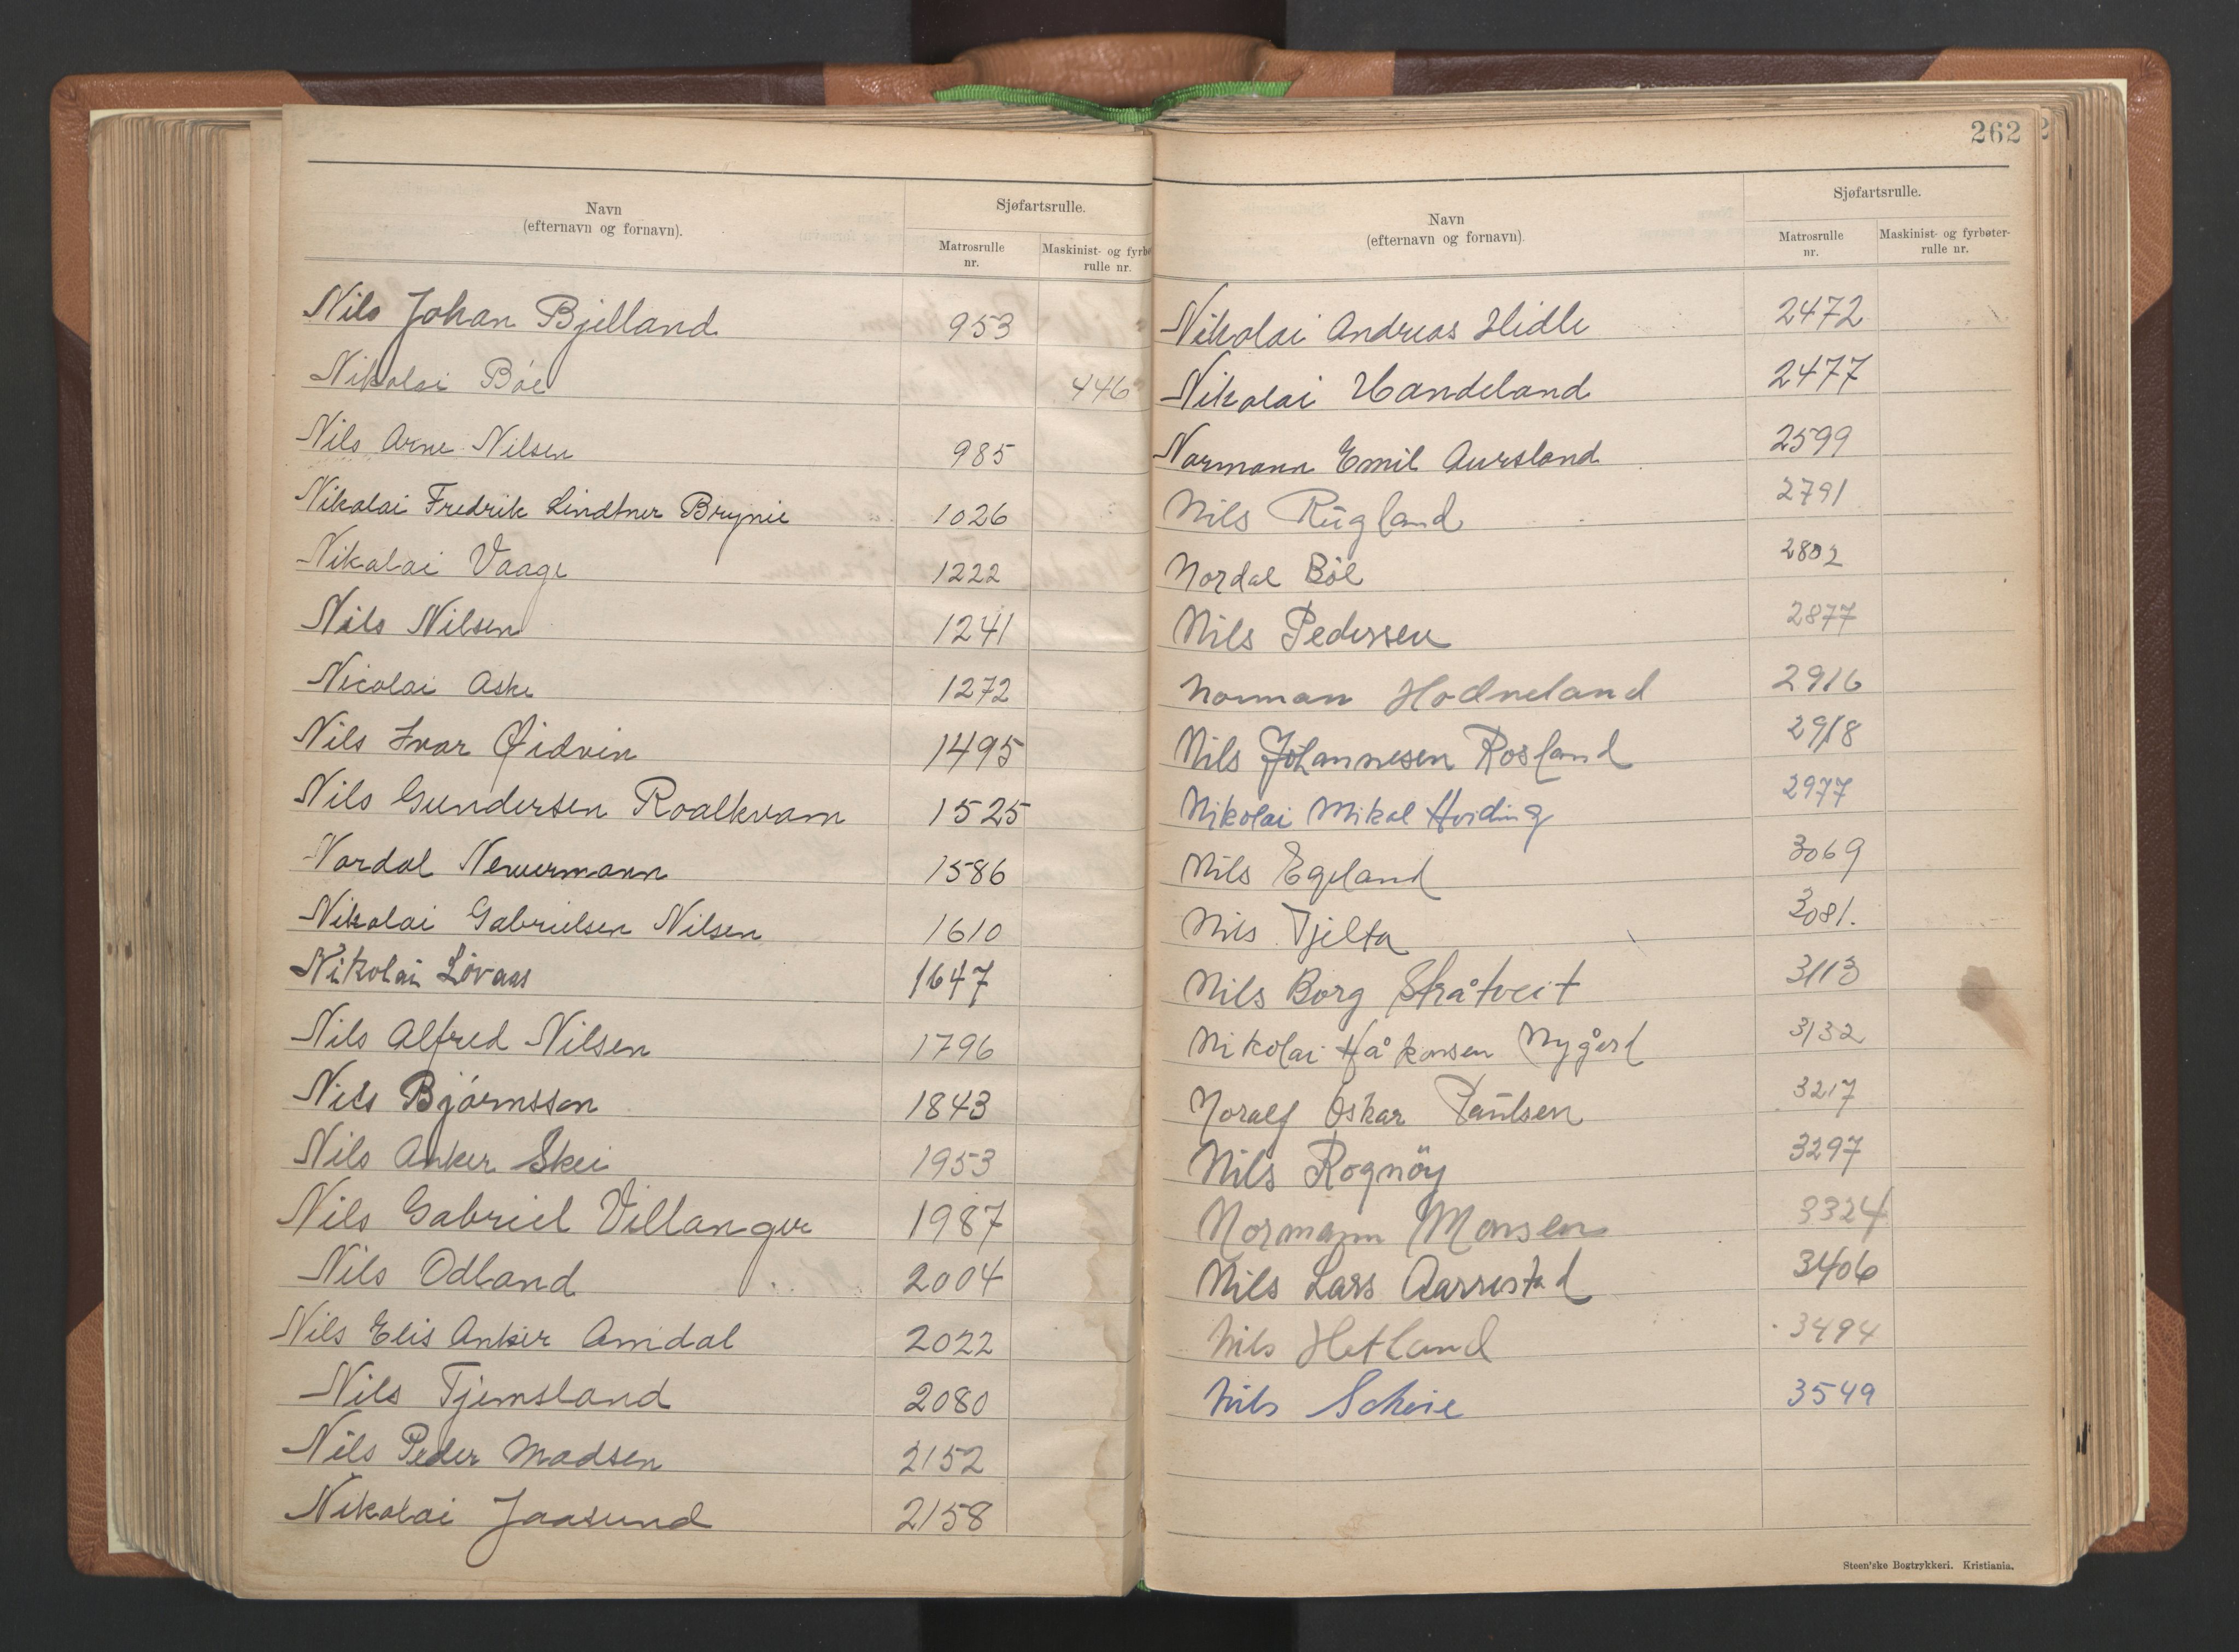 Navn
(efternavn og fornavn).
Sjøfartsrulle.
Matrosrulle
nr.
Maskinist- og fyrbø
rulle nr.
Nils Johan Bjelland 953
Nikolai Bøe 446
Nils Arne Nilsen 985
Nikolai Fredrik Lindtner Brynie 1026
Nikolai Vaage 1222
Nils Nilsen 1241
Nicolai Aske 1272
Nils Ivar Øidvin 1495
Nils Gundersen Roalkvam 1525
Nordal Newermann 1586
Nikolai Gabrielsen Nilsen 1610
Nikolai Lövaas 1647
Nils Alfred Nilsen 1796
Nils Bjørnsson 1843
Nils Anker Skei 1953
Nils Gabriel Villanger 1987
Nils Odland 2004
Nils Elis Anker Amdal 2022
Nils Tjemsland 2080
Nils Peder Madsen 2152
Nikolai Jaasund 2158
262
Navn
(efternavn og fornavn).
Sjøfartsrulle.
Matrosrulle
nr.
Maskinist- og fyrbøter-
rulle nr.
Nikolai Andreas Hidle 2472
Nikolai Handeland 2477
Normann Emil Aursland 2599
Nils Rugland 2791
Nordal Böe 2802
Nils Pedersen 2877
Norman Hodneland 2916
Nils Johannesen Rosland 2918
Nikolai Mikal Hviding 2977
Nils Egeland 3069
Nils Tjelta 3081.
Nils Borg Skråtveit 3113
Nikolai Håkonsen Nygård 3132
Noralf Oskar Paulsen 3217
Nils Rognöy 3297
Normann Monsen 3324
Nils Lars Aarrestad 3406
Nils Hetland 3494
Nils Scheie 3549
Steen'ske Bogtrykkeri. Kristiania.